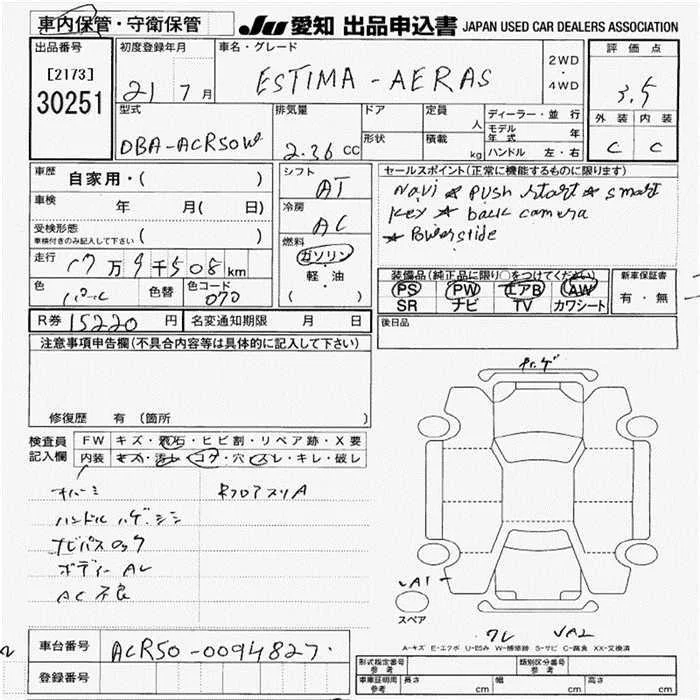 車内保管・守衛保管
JU 愛知 出品申込書 JAPAN USED CAR DEALERS ASSOCIATION
出品番号
[2173]
30251
初度登録年月
21 7 月
車名・グレード
ESTIMA - AERAS
2WD
・
4WD
評価点
3.5
外装 内装
C C
型式
DBA-ACR50W
排気量
2.36 CC
ドア
形状
定員
人
積載
kg
ディーラー・並行
モデル年式 年
ハンドル 左・右
車歴
自家用・( )
車検
年 月( 日)
受検形態
車検付きのみ記入して下さい ( )
走行
17万9千508km
色
パール
色替
色コード
070
シフト
AT
冷房
AC
燃料
ガソリン
軽・油
( )
セールスポイント(正常に機能するものに限ります)
Navi ★ push start ★ smart
key ★ back camera
★ Powerslide
装備品(純正品に限り○をつけてください)
PS PW エアB AW
SR ナビ TV カワシート
新車保証書
有・無
R券 15220 円
名変通知期限 月 日
後日品
注意事項申告欄(不具合内容等は具体的に記入して下さい)
修復歴 有 (箇所 )
検査員
記入欄
FW キズ・飛石・ヒビ割・リペア跡・X要
内装 キズ・汚レ・コゲ・穴・スレ・キレ・破レ
ハンドル ハゲ・シミ
ナビパスロック
ボディー AC
AC不良
A1
スペア
A-キズ E-エクボ U-凹み W-補修跡 S-サビ C-腐食 XX-交換済
車台番号
ACR50-0094827
登録番号
形式指定番号
参考
類別区分番号
参考
車庫証明用
参考
長さ cm
幅 cm
高さ cm